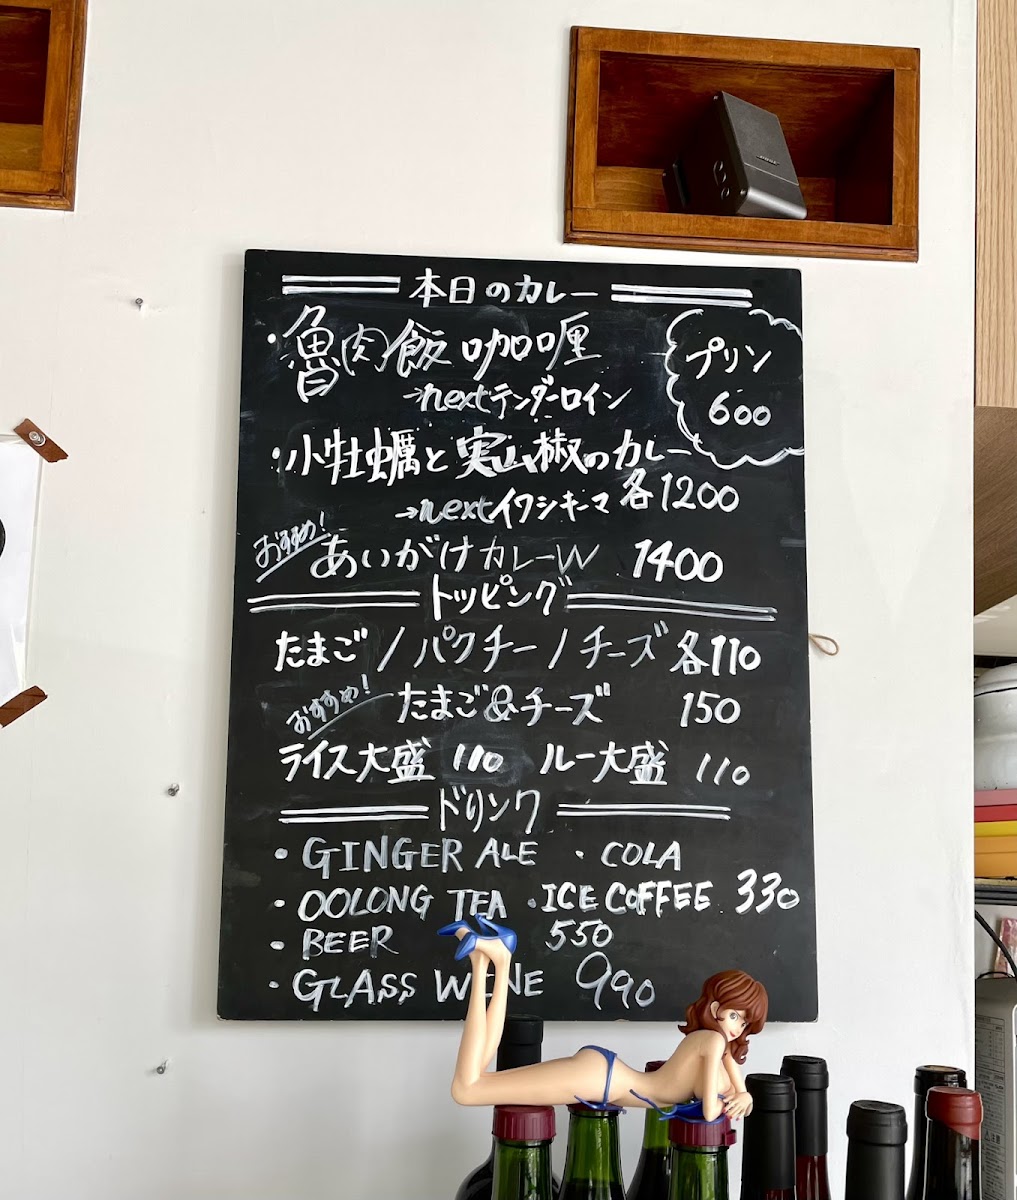 本日のカレー
・魯肉飯咖喱
プリン
600
→nextテンダーロイン
・小牡蠣と実山椒のカレー
→nextイワシキーマ 各1200
おすすめ! あいがけカレーW 1400
トッピング
たまご/パクチー/チーズ 各110
おすすめ! たまご&チーズ 150
ライス大盛 110 ルー大盛 110
ドリンク
・GINGER ALE ・COLA
・OOLONG TEA ・ICE COFFEE 330
・BEER 550
・GLASS WINE 990